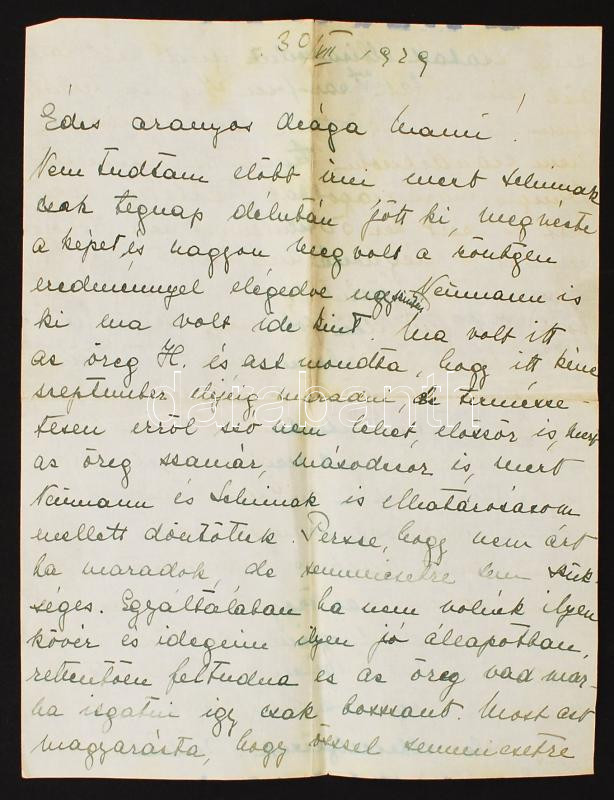 30 VIII 1929
Édes aranyos drága Mami!
Nem tudtam előbb írni mert Schimak
csak tegnap délután jött ki, megnézte
a képet és nagyon meg volt a röntgen
eredménnyel elégedve ugyszintén Neumann is
ki ma volt ide kint. Ma volt itt
az öreg H. és azt mondta, hogy itt kéne
szeptember elejéig maradni, és természe-
tesen erről szó nem lehet, először is, mert
az öreg szamár, másodszor is, mert
Neumann és Schimak is elhatározásom
mellett döntöttek. Persze, hogy nem árt
ha maradok, de semmiesetre sem szük-
séges. Egyáltalában ha nem volnék ilyen
kövér és idegeim ilyen jó állapotban,
rettentően feltudna és az öreg vad mar-
ha izgatni így csak bosszant. Most azt
magyarázta, hogy ősszel semmiesetre
databanth